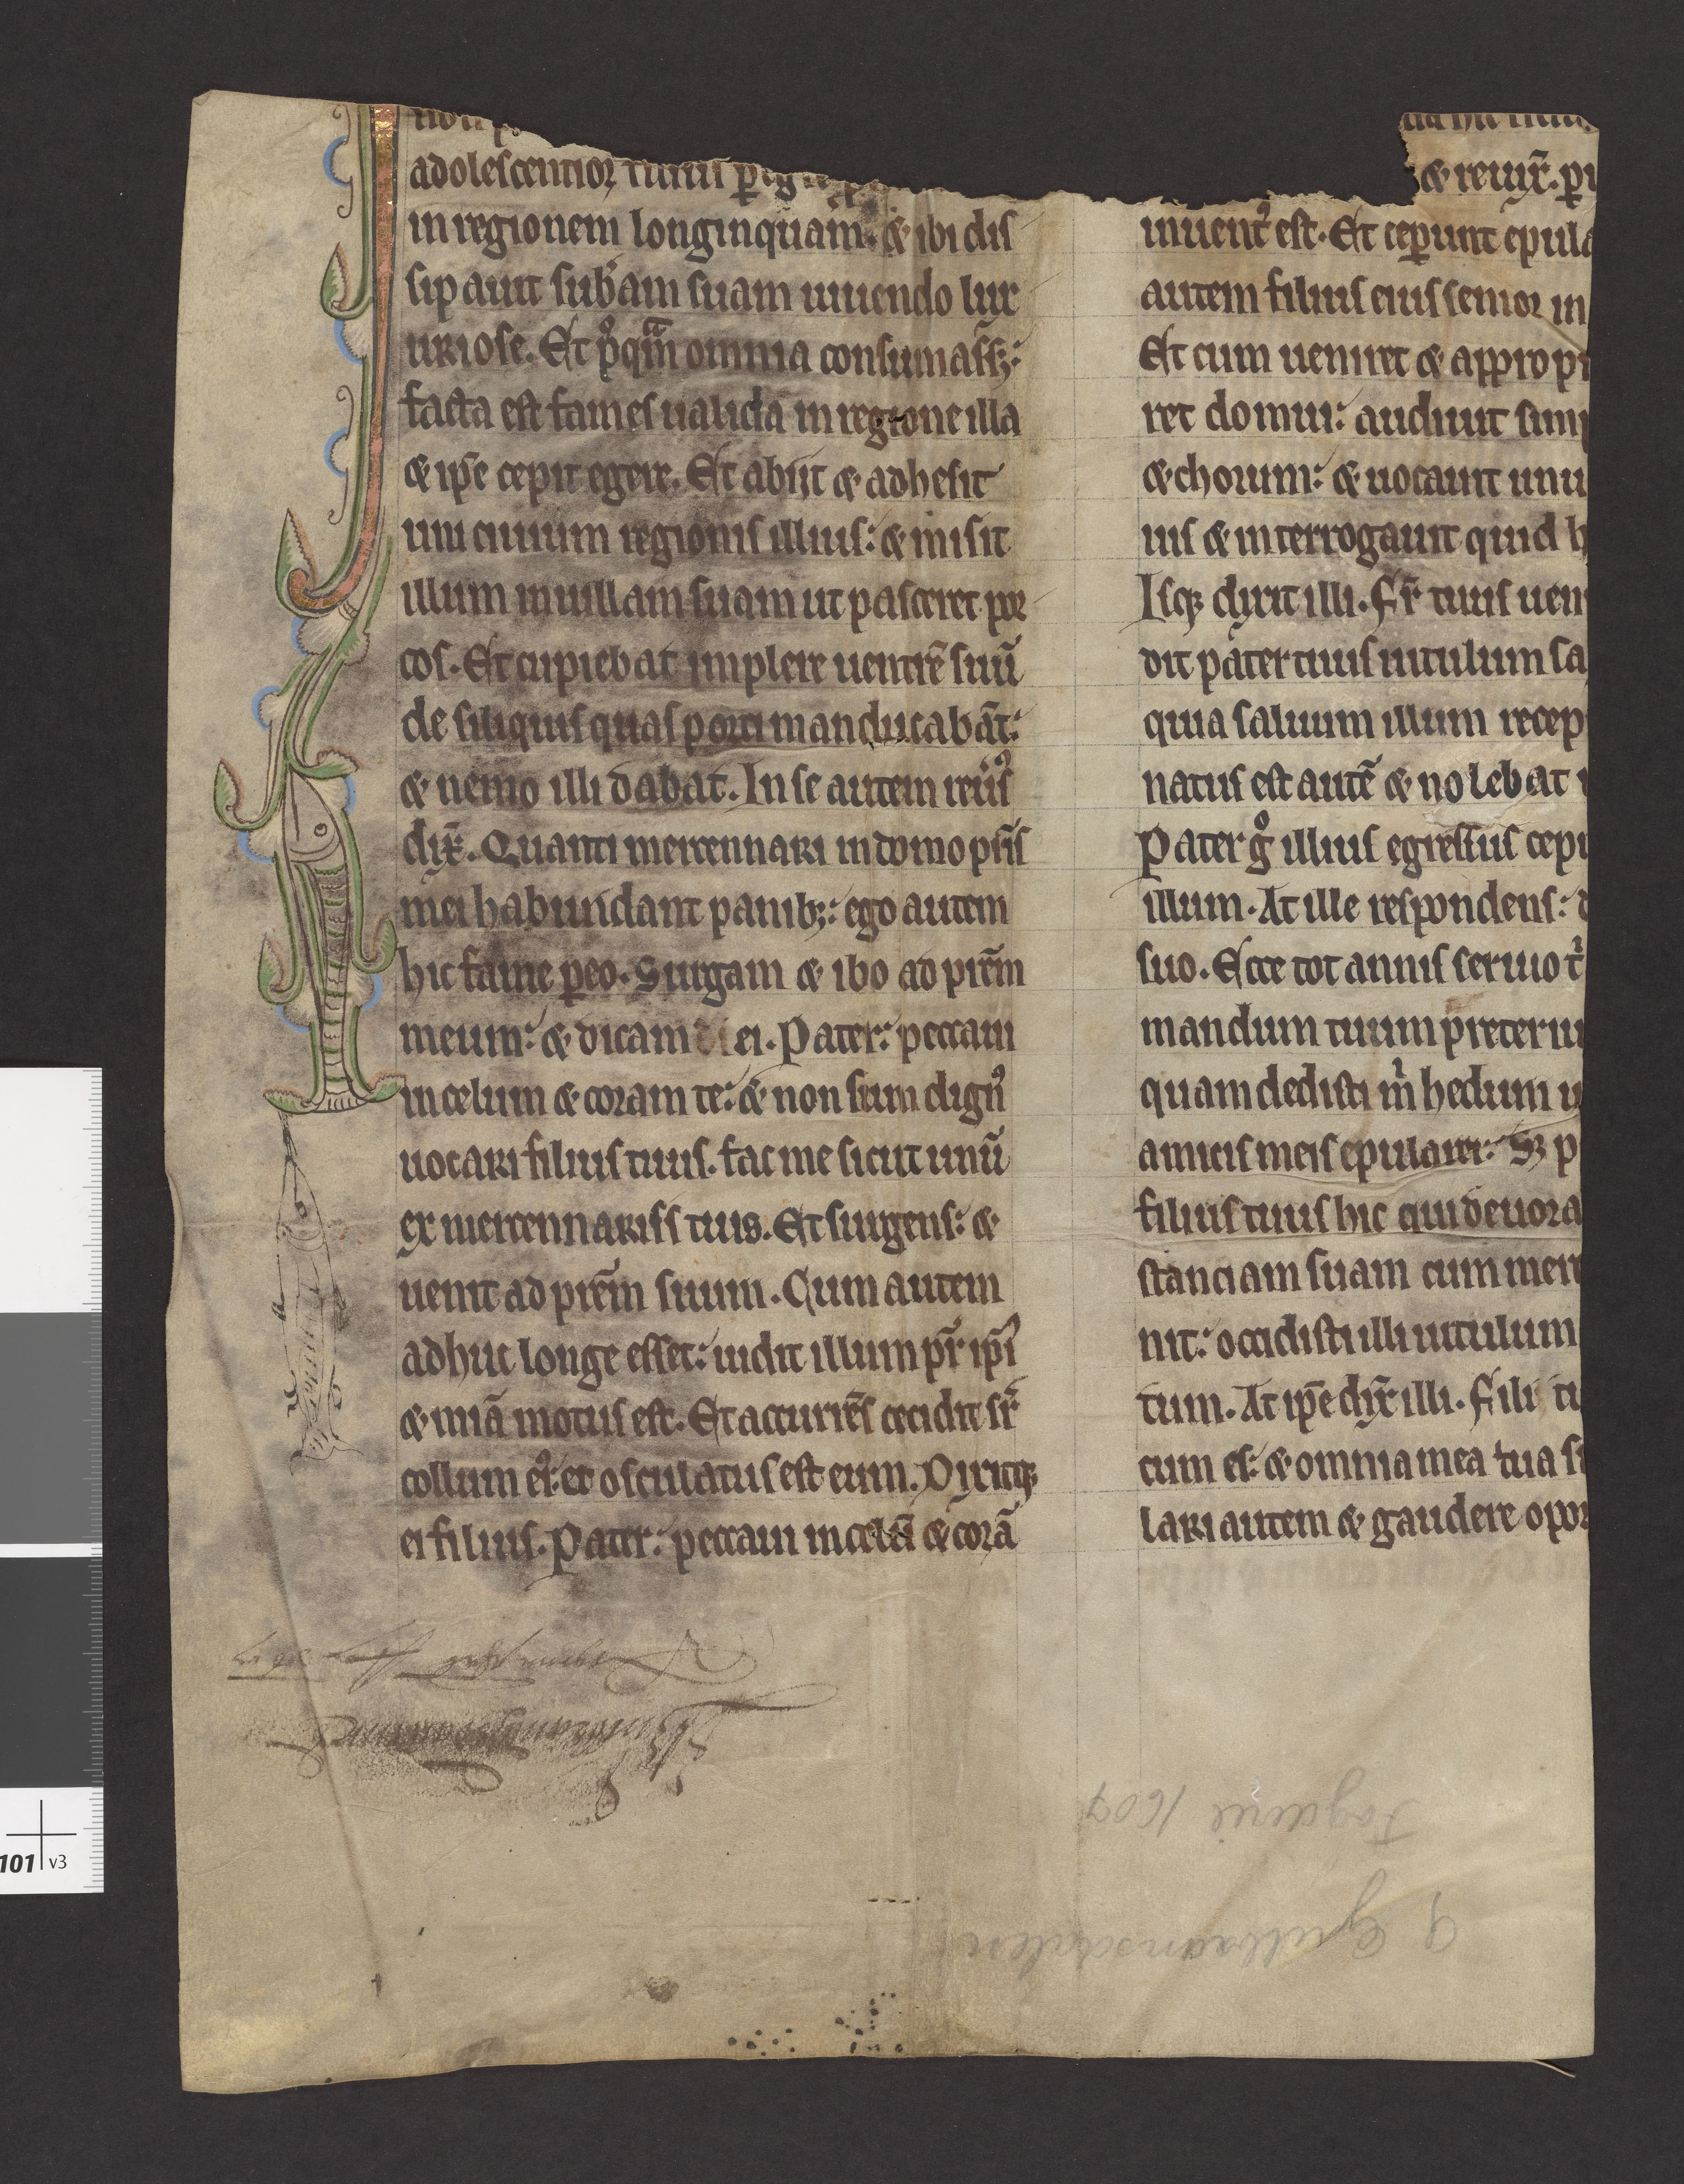 adolescentior
in regionem longinquam. & ibi dis
sipauit sub̄am suam uiuendo lux
uriose. Et p̊qm̄ omnia consumass&:
facta est fames ualida in regione illa
& ipse cepit egere. Et abiit & adhesit
uni ciuium regionis illius: & misit
illum in uillam suam ut pasceret por
cos. Et cupiebat implere uentrē suū
de siliquis quas porci manducabāt:
& nemo illi dabat. In se autem reu̅s᷒
dix̄. Quanti mercennarii in domo pr̄is
mei habundant panibꝫ: ego autem
hic fame ꝑeo. Surgam & ibo ad prēm
meum: & dicam ei. Pater: peccaui
in celum & coram te: & non sum dignꝰ
uocari filius tuus. fac me sicut unū
ex mercennariis tuis. Et surgens: &
uenit ad prēm suum. Cum autem
adhuc longe esset: uidit illum pr̄ ipīꝰ
& mīa motus est. Et accurrēs cecidit sr̄
collum eiꝰ: et osculatus est eum. Dixitqꝫ
ei filius. Pater: peccaui in celū & corā
& reuix̄.
inuentꝰ est. Et ceꝑunt epula
autem filius eius senior in
Et cum ueniret & appropi
ret domui: audiuit sim
& chorum: & uocauit unu
uis & interrogauit quid h
Isqꝫ dixit illi. Fr̄ tuus uen
dit pater tuus uitulum sa
quia saluum illum recep
natus est autē & nolebat
Pater g̊ illius egressus cepi
illum. At ille respondens: d
suo. Ecce tot annis seruo t̄
mandum tuum preteriu
quam dedisti m̄ hedum u
amicis meis epularer: Sꝫ p
filius tuus hic qui deuora
stanciam suam cum mere
nit: occidisti illi uitulum
tum. At ipē dix̄ illi. Fili tu
cum es: & omnia mea tua s
lari autem & gaudere opor
Fogderie 1607
9 Gulbransdalen